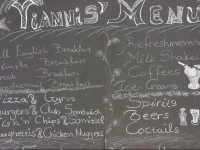 YIANNIS' MENU
Full English Breakfast
Simple Breakfast
Breakfast
Breakfast
Pizza & Gyros
Burgers & Club Sandwich
Fish n' Chips & Schnitzel
Spaghettis & Chicken Nuggets
Refreshments
Milk Shakes
Coffees
Ice-Creams
Spirits
Beers
Coctails